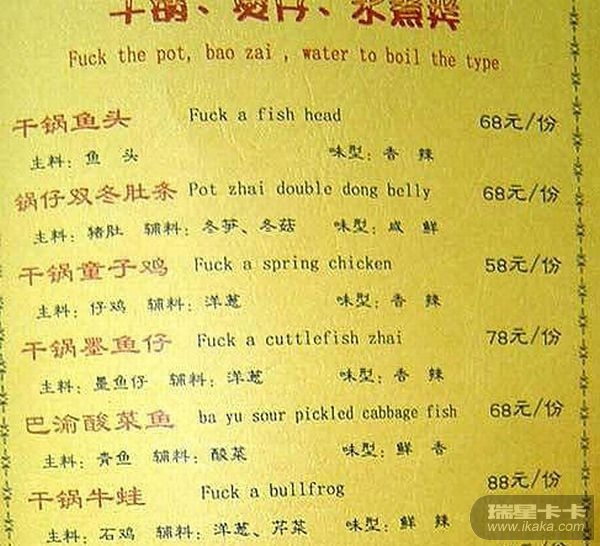 干锅、煲仔、水煮类
Fuck the pot, bao zai , water to boil the type
干锅鱼头 Fuck a fish head 68元/份
主料：鱼 头 味型：香 辣
锅仔双冬肚条 Pot zhai double dong belly 68元/份
主料：猪肚 辅料：冬笋、冬菇 味型：咸 鲜
干锅童子鸡 Fuck a spring chicken 58元/份
主料：仔鸡 辅料：洋葱 味型：香 辣
干锅墨鱼仔 Fuck a cuttlefish zhai 78元/份
主料：墨鱼仔 辅料：洋葱 味型：香 辣
巴渝酸菜鱼 ba yu sour pickled cabbage fish 68元/份
主料：青鱼 辅料：酸菜 味型：鲜 香
干锅牛蛙 Fuck a bullfrog 88元/份
主料：石鸡 辅料：洋葱、芹菜 味型：鲜 辣
瑞星卡卡
www.ikaka.com